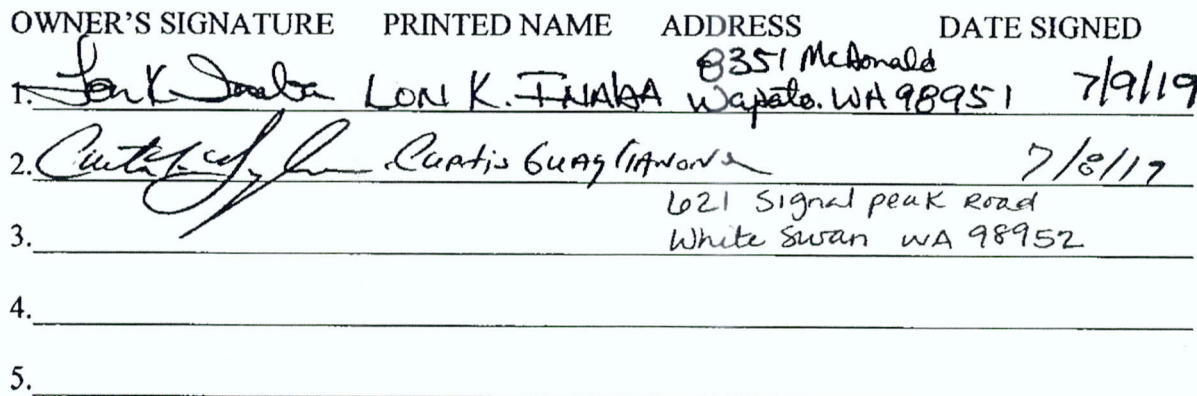 OWNER'S SIGNATURE PRINTED NAME ADDRESS DATE SIGNED
8351 McDonald
1. Lon K Inaba LON K. INABA Wapato. WA 98951 7/9/19
2. Curtis Guaglianone 7/8/19
621 Signal peak Road
3. White Swan WA 98952
4.
5.